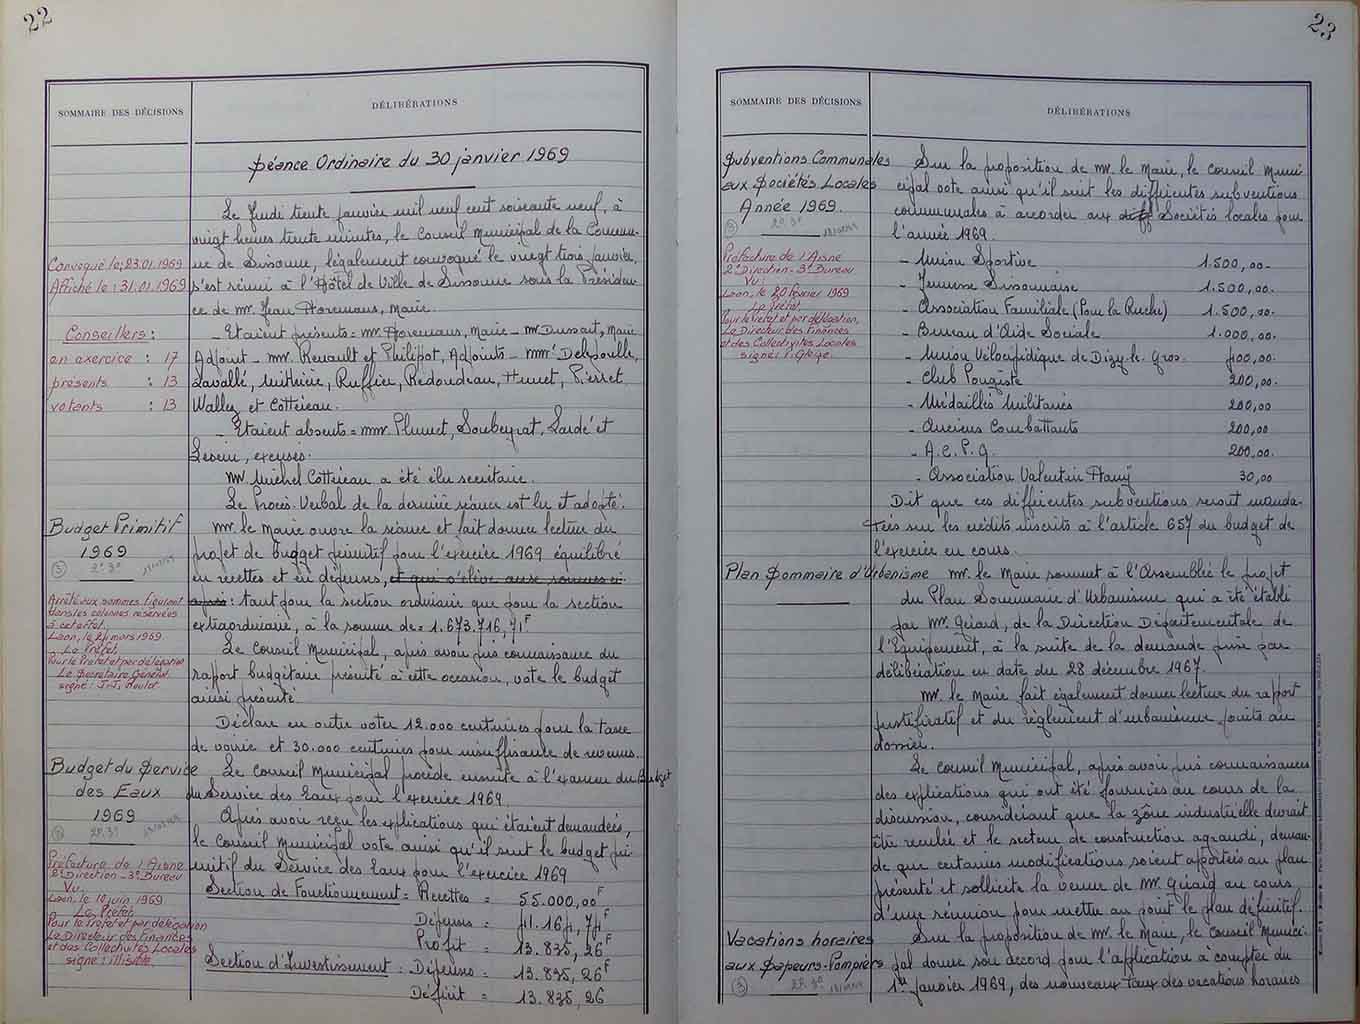 22
SOMMAIRE DES DÉCISIONS
DÉLIBÉRATIONS
Séance Ordinaire du 30 janvier 1969
Le Jeudi trente janvier mil neuf cent soixante neuf, à
vingt heures trente minutes, le Conseil Municipal de la Commu-
ne de Sissonne, légalement convoqué le vingt trois janvier,
s'est réuni à l'Hôtel de Ville de Sissonne sous la Présiden-
ce de Mr. Jean Horemans, Maire.
Convoqué le : 23.01.1969
Affiché le : 31.01.1969
Conseillers :
en exercice : 17
présents : 13
votants : 13
- Etaient présents = Mr Horemans, Maire - Mr Dussart, Maire
Adjoint - MM. Renault et Philippot, Adjoints - MM. Delepoulle,
Lavallé, Ruffier, Redoudeau, Hunet, Pierret
Wallez et Cottereau.
- Etaient absents = MM. Plunet, Soubeyrat, Lardé et
excusés.
Mr Michel Cottereau a été élu secrétaire.
Le Procès-Verbal de la dernière séance est lu et adopté.
Budget Primitif
1969
3 2°.3°
Mr. le Maire ouvre la séance et fait donner lecture du
projet de budget primitif pour l'exercice 1969 équilibré
en recettes et en dépenses, et qui s'élève aux sommes ci-
après : tant pour la section ordinaire que pour la section
extraordinaire, à la somme de = 1.673.716,71F
Arrêté aux sommes figurant
dans les colonnes réservées
à cet effet.
Laon, le 24 mars 1969
Le Préfet,
Pour le Préfet et par délégation
Le Secrétaire Général
signé : J.J.
Le Conseil Municipal, après avoir pris connaissance du
rapport budgétaire présenté à cette occasion, vote le budget
ainsi présenté.
Déclare en outre voter 12.000 centimes pour la taxe
de voirie et 30.000 centimes pour insuffisance de revenus.
Budget du Service
des Eaux
1969
3 2°.3°
Le Conseil Municipal procède ensuite à l'examen du Budget
du Service des Eaux pour l'exercice 1969.
Après avoir reçu les explications qui étaient demandées,
le Conseil Municipal vote ainsi qu'il suit le budget pri-
mitif du Service des Eaux pour l'exercice 1969
Préfecture de l'Aisne
2° Direction - 3° Bureau
Vu
Laon, le 10 juin 1969
Le Préfet,
Pour le Préfet et par délégation
Le Directeur des Finances
et des Collectivités Locales
signé : illisible
Section de Fonctionnement = Recettes = 55.000,00F
Dépenses = 41.164,74F
Profit = 13.835,26F
Section d'Investissement : Dépenses = 13.835,26F
Déficit = 13.835,26
23
SOMMAIRE DES DÉCISIONS
DÉLIBÉRATIONS
Subventions Communales
aux Sociétés Locales
Année 1969.
3 2°.3°
Sur la proposition de Mr. le Maire, le Conseil Muni
cipal vote ainsi qu'il suit les différentes subventions
communales à accorder aux diff Sociétés locales pour
l'année 1969.
Préfecture de l'Aisne
2° Direction - 3° Bureau
Vu :
Laon, le 20 février 1969
Le Préfet
Pour le Préfet et par délégation,
Le Directeur des Finances
et des Collectivités Locales
signé :
- Union Sportive 1.500,00-
- Jeunesse Sissonnaise 1.500,00-
- Association Familiale (Pour la Ruche) 1.500,00-
- Bureau d'Aide Sociale 1.000,00-
- Union Vélocipédique de Dizy-le-Gros. 400,00-
- Club Pongiste 200,00-
- Médaillés Militaires 200,00
- Anciens Combattants 200,00
- A.C.P.G. 200,00-
- Association Valentin Haüy 30,00
Dit que ces différentes subventions seront manda-
tées sur les crédits inscrits à l'article 657 du budget de
l'exercice en cours.
Plan Sommaire d'Urbanisme
Mr. le Maire soumet à l'Assemblée le projet
du Plan Sommaire d'Urbanisme qui a été établi
par Mr. Girard, de la Direction Départementale de
l'Equipement, à la suite de la demande prise par
délibération en date du 28 décembre 1967.
Mr. le Maire fait également donner lecture du rapport
justificatif et du règlement d'urbanisme joints au
dossier.
Le Conseil Municipal, après avoir pris connaissances
des explications qui ont été fournies au cours de la
discussion, considérant que la zône industrielle devrait
être reculée et le secteur de construction agrandi, deman-
de que certaines modifications soient apportées au plan
présenté et sollicite la venue de Mr. Girard au cours
d'une réunion pour mettre au point le plan définitif.
Vacations horaires
aux Sapeurs-Pompiers
3 2°.3°
Sur la proposition de Mr. le Maire, le Conseil Munici-
pal donne son accord pour l'application à compter du
1er janvier 1969, des nouveaux taux des vacations horaires